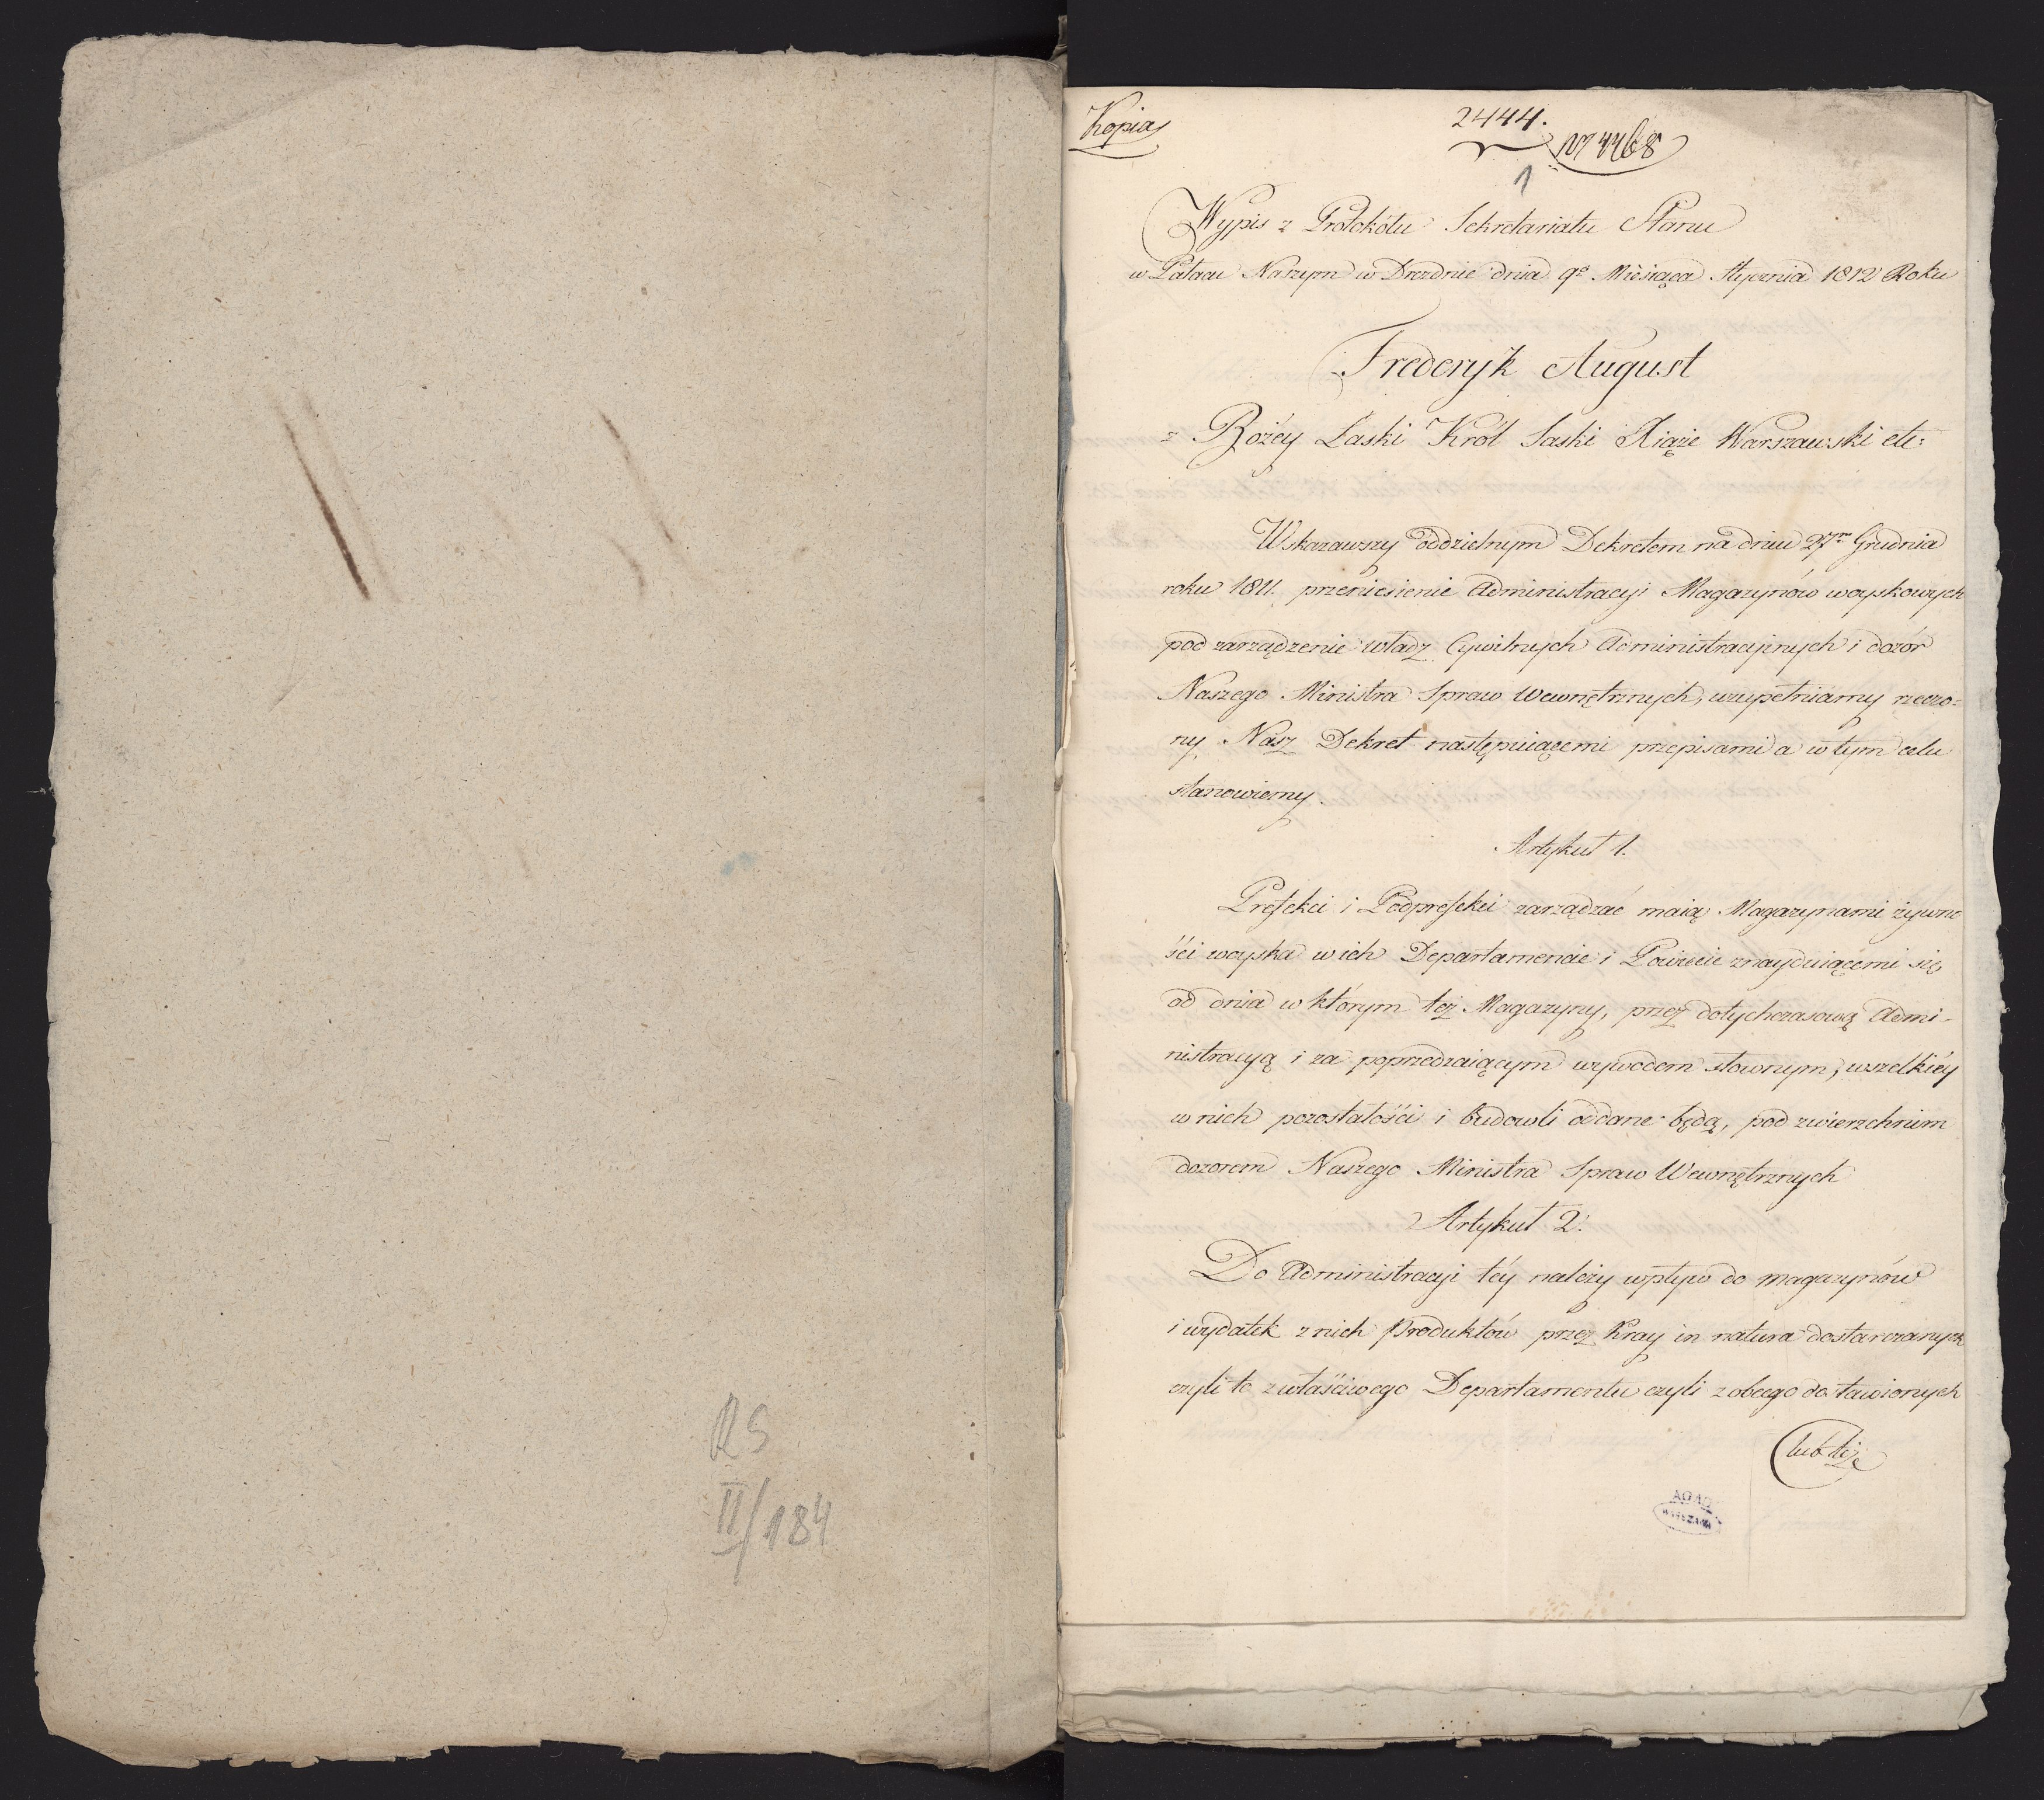 RS
II/184
Kopia
2444.
N 4468
1
Wypis z Protokółu Sekretariatu Stanu
w Pałacu Naszym w Dreźnie dnia 9º Miesiąca Stycznia 1812 Roku
Frederyk August
z Bożéy Łaski Król Saski Xiąże Warszawski etc:
Wskazawszy oddzielnym Dekretem na dniu 27m Grudnia
roku 1811. przeniesienie Administracyi Magazynów woyskowych
pod zarządzenie władz Cywilnych Administracyjnych i dozór
Naszego Ministra Spraw Wewnętrznych, uzupełniamy rzeczo=
ny, Nasz Dekret następuiącemi przepisami a w tym celu
stanowiemy.
Artykuł 1.
Prefekci i Podprefekci zarządzać maią Magazynami żywno
ści woyska w ich Departamencie i Powiecie znayduiącemi się
od dnia w którym też Magazyny, przez dotychczasową Admi-
nistracyą i za poprzedzaiącym wywodem słownym, wszelkiéy
w nich pozostałości i budowli oddane będą, pod zwierzchnim
dozorem Naszego Ministra Spraw Wewnętrznych
Artykuł 2.
Do Administracyi téy należy wpływ do magazynów
i wydatek z nich Produktów przez Kray in natura dostarczanych
czyli to z właściwego Departamentu czyli z obcego dostawionych
lub też
AGAD
WARSZAWA